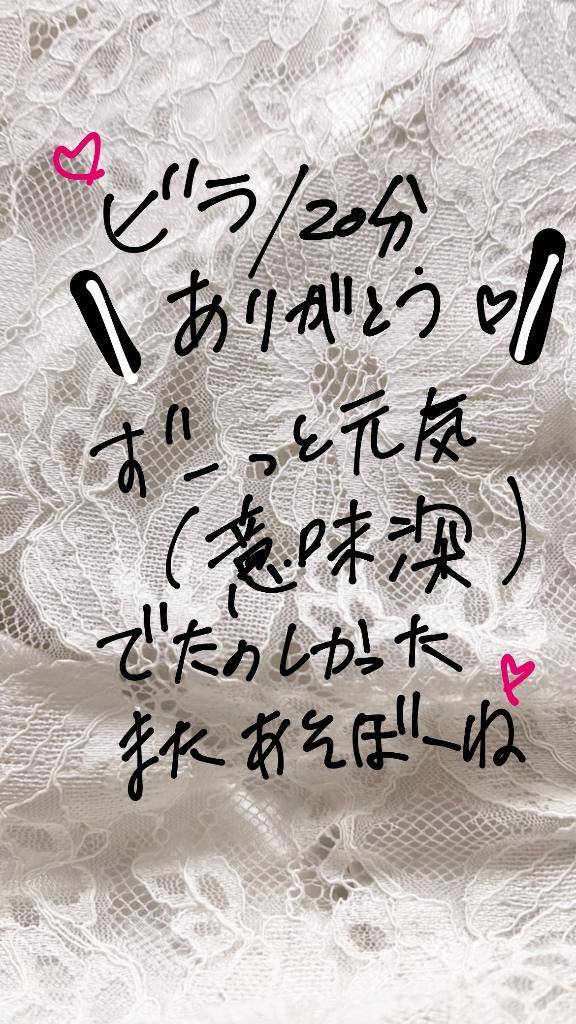 ビラ/20分
ありがとう
ずーっと元気
(意味深)
でたのしかった
またあそぼーね